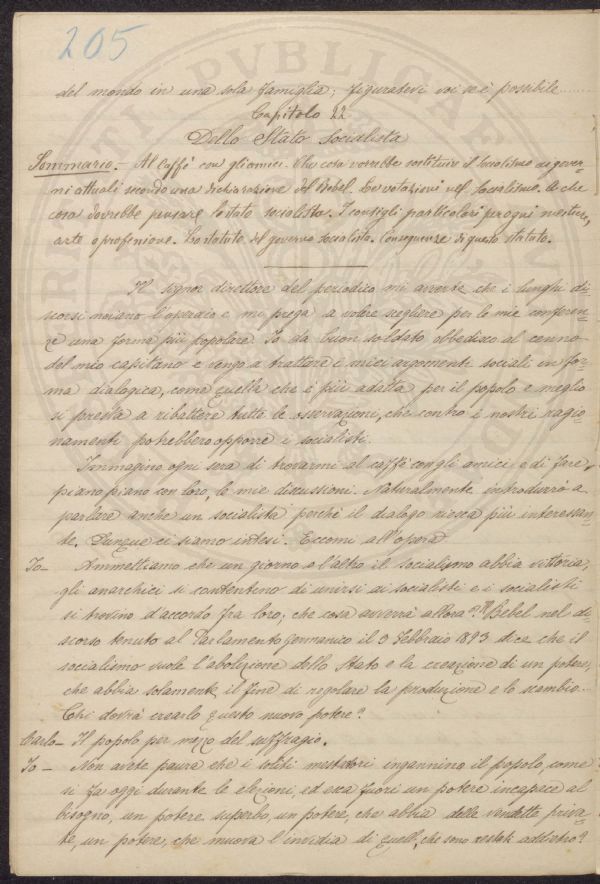 205
del mondo in una sola famiglia; figuratevi voi se è possibile......
Capitolo 22
Dello Stato Socialista
Sommario.- Al Caffè con gli amici. Che cosa vorrebbe sostituire il socialismo ai gover-
ni attuali secondo una dichiarazione del Bebel. Le votazioni nel socialismo. A che
cosa dovrebbe pensare lo stato socialista. I consigli particolari per ogni mestiere,
arte o professione. Lo statuto del governo socialista. Conseguenze di questo statuto.
Il signor direttore del periodico mi avverte che i lunghi di-
scorsi noiano l'operaio e mi prega a volere scegliere per le mie conferen-
ze una forma più popolare. Io da buon soldato obbedisco al cenno
del mio capitano e vengo a trattare i miei argomenti sociali in for-
ma dialogica, come quella che è più adatta per il popolo e meglio
si presta a ribattere tutte le osservazioni, che contro i nostri ragio-
namenti potrebbero opporre i socialisti.
Immagino ogni sera di trovarmi al caffè con gli amici e di fare,
piano piano con loro, le mie discussioni. Naturalmente introdurrò a
parlare anche un socialista perché il dialogo riesca più interessan-
te. Dunque ci siamo intesi. Eccomi all'opera
Io- Ammettiamo che un giorno o l'altro il socialismo abbia vittoria,
gli anarchici si contentino di unirsi ai socialisti e i socialisti
si trovino d'accordo fra loro; che cosa avverrà allora? Il Bebel nel di-
scorso tenuto al Parlamento germanico il 3 Febbraio 1893 dice che il
socialismo vuole l'abolizione dello Stato e la creazione di un potere,
che abbia solamente il fine di regolare la produzione e lo scambio...
Chi dovrà crearlo questo nuovo potere?
Carlo- Il popolo per mezzo del suffragio.
Io- Non avete paura che i soliti mestatori ingannino il popolo, come
si fa oggi durante le elezioni, ed esca fuori un potere incapace al
bisogno, un potere superbo, un potere, che abbia delle vendette priva-
te, un potere, che muova l'invidia di quelli, che sono restati addietro?